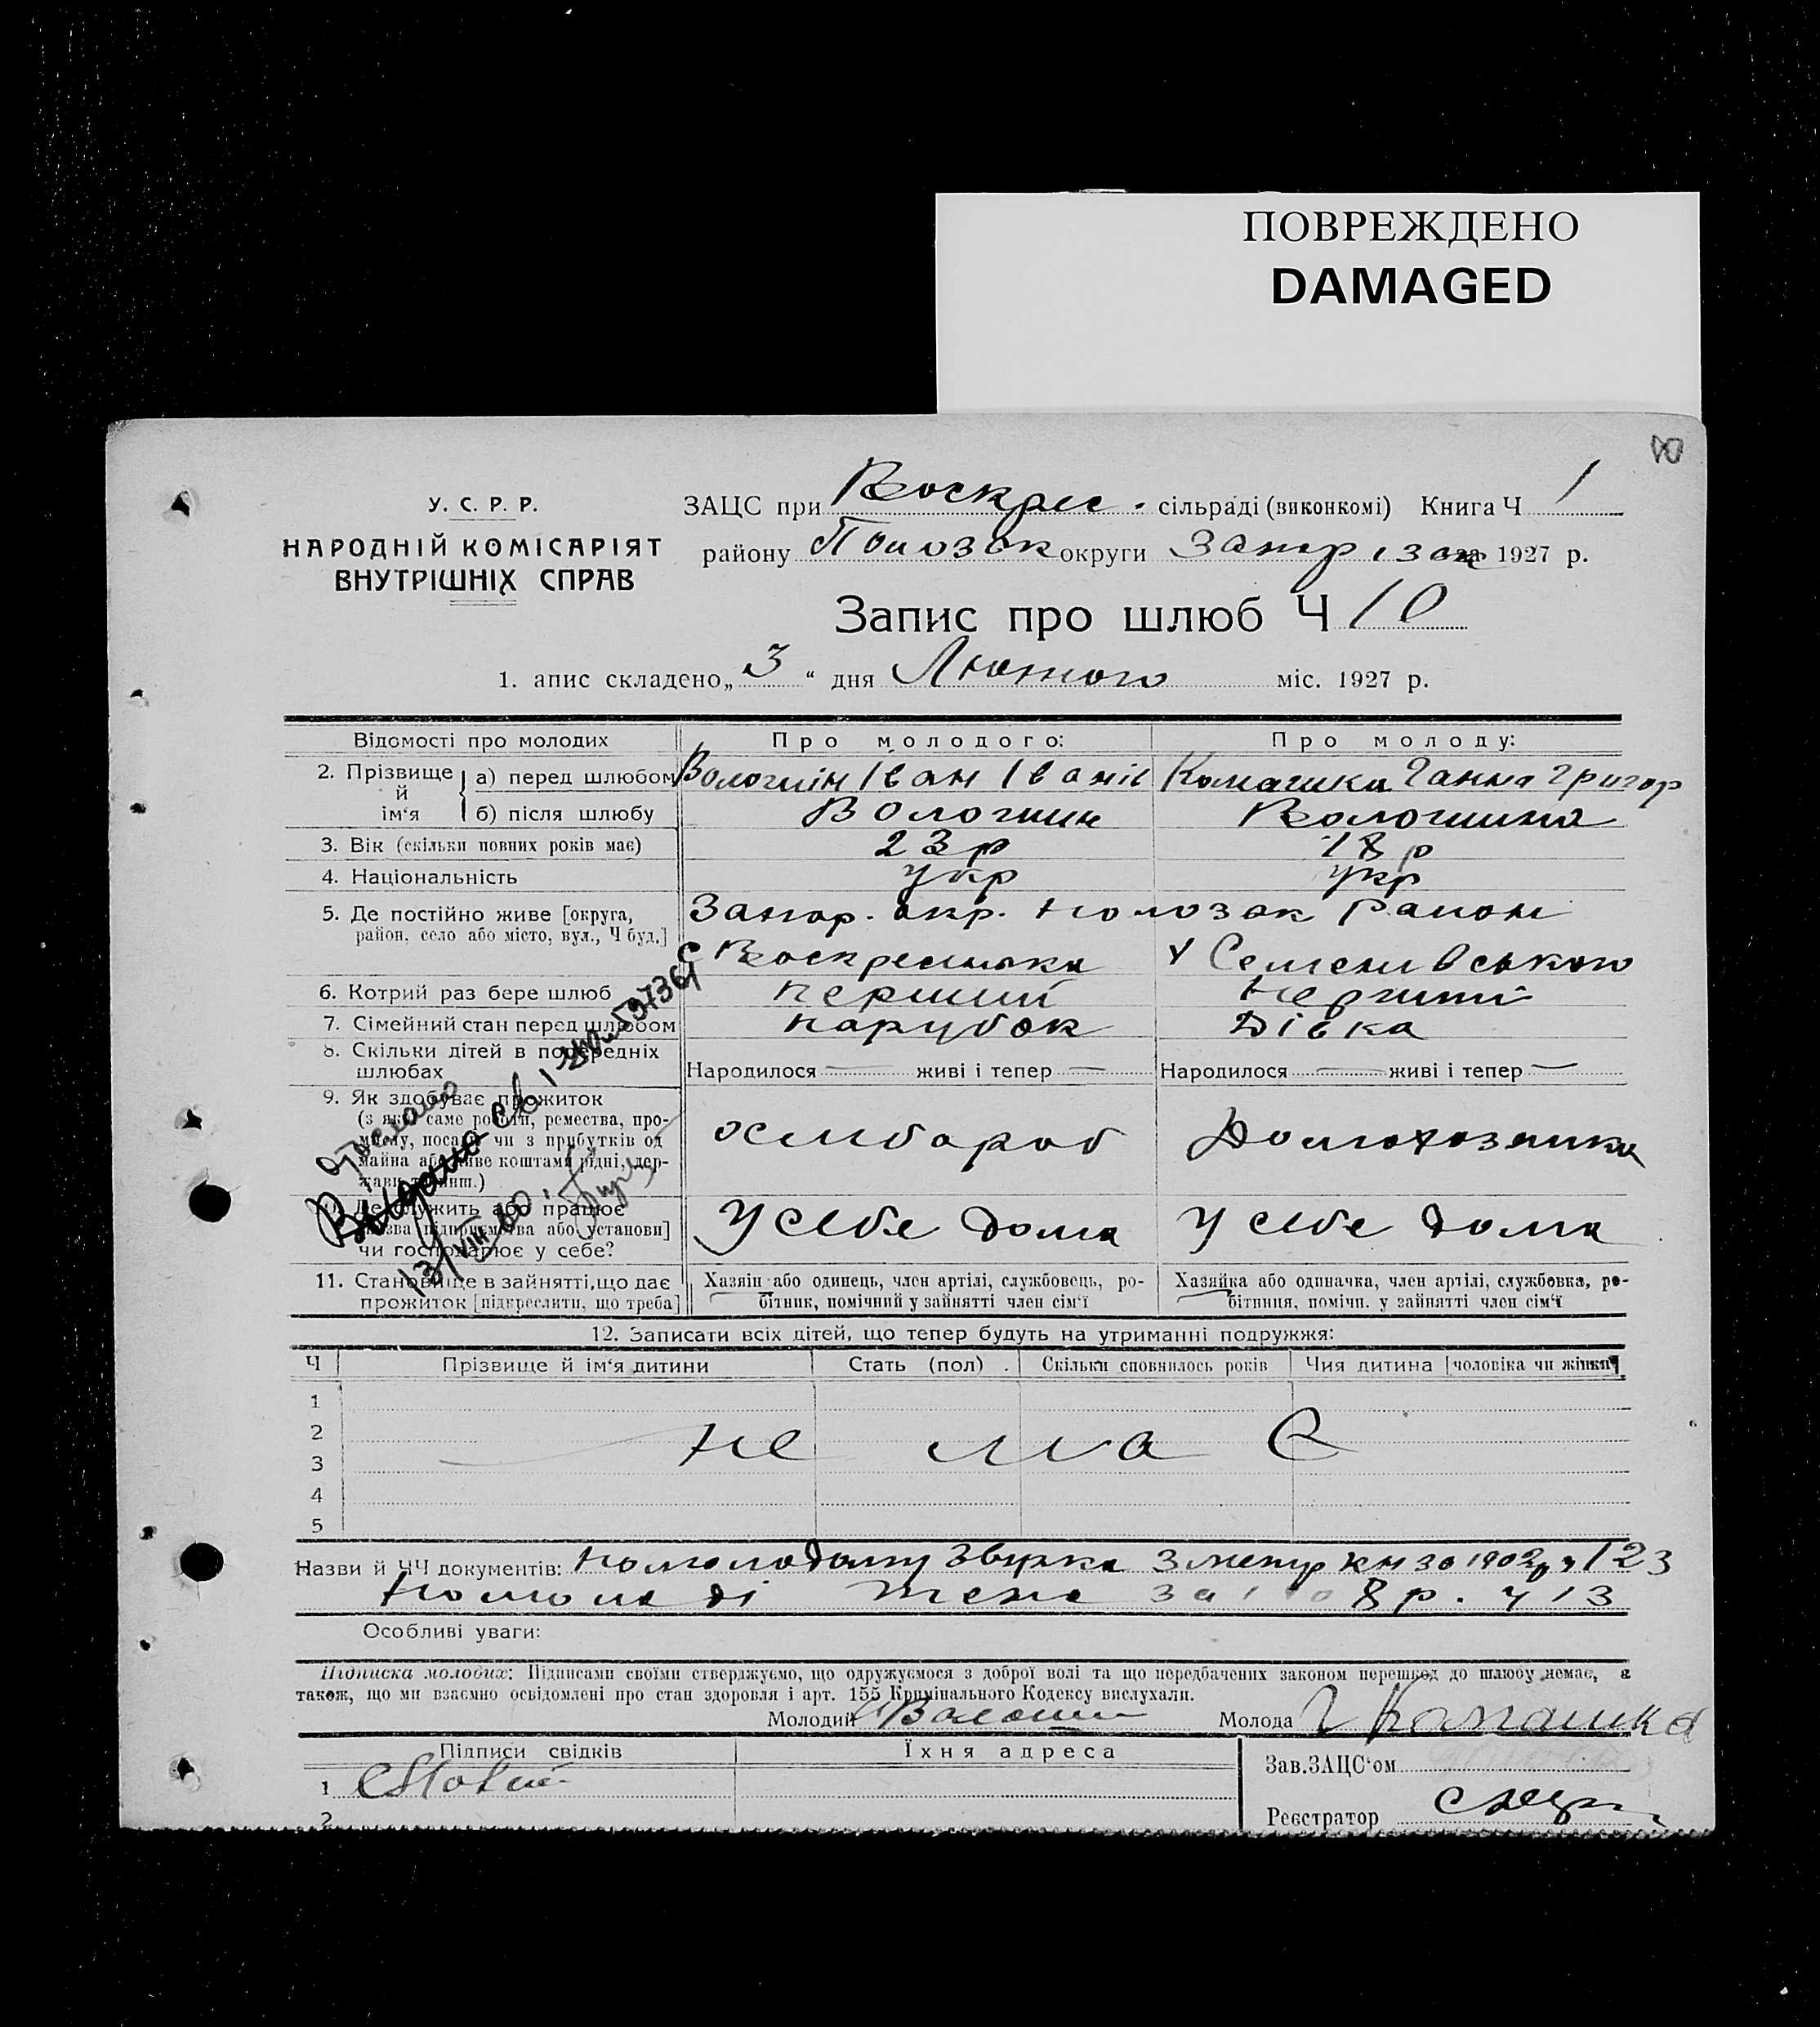 ПОВРЕЖДЕНО
DAMAGED
10
У. С. Р. Р.
НАРОДНІЙ КОМІСАРІЯТ
ВНУТРІШНІХ СПРАВ
ЗАЦС при Воскрес. сільраді (виконкомі) Книга Ч 1
району округи за 1927 р.
Запис про шлюб Ч 10
1. апис складено „ 3 “ дня Лютого міс. 1927 р.
Відомості про молодих Про молодого: Про молоду:
2. Прізвище й ім‘я а) перед шлюбом Волошін Іван Іванів Ганна Григор
б) після шлюбу Волошин Волошина
3. Вік (скільки повних років має) 23 р 18 р
4. Національність укр укр
5. Де постійно живе [округа, район, село або місто, вул., Ч буд.] Запор. окр. Полозак Район
с Воскресинка У Семенівського
6. Котрий раз бере шлюб перший перший
7. Сімейний стан перед шлюбом парубок Дівка
8. Скільки дітей в попередніх шлюбах Народилося — живі і тепер — Народилося — живі і тепер —
9. Як здобуває прожиток
(з якої саме роботи, ремества, про-
мислу, посади чи з прибутків од
майна або живе коштами рідні, дер-
жави то инш.)
хлибороб Домохозяика
10. Де служить або працює
[назва підприємства або установи]
чи господарює у себе?
У себе дома У себе дома
Видано св
13/VIII 60
11. Становище в зайнятті, що дає
прожиток [підкреслити, що треба]
Хазяін або одинець, член артілі, службовець, ро-
бітник, помічний у зайнятті член сім‘ї
Хазяйка або одиначка, член артілі, службовка, ро-
бітниця, помічн. у зайнятті член сім‘ї
12. Записати всіх дітей, що тепер будуть на утриманні подружжя:
Ч Прізвище й ім‘я дитини Стать (пол) Скільки сповнилось років Чия дитина [чоловіка чи жінки]
1
2
не має
3
4
5
Назви й ЧЧ документів: помолодому Звірка з метр кн за 1902 р ч 123
помоладі теж за 8 р. ч 13
Особливі уваги:
Підписка молодих: Підписами своїми стверджуємо, що одружуємося з доброї волі та що передбачених законом перешкод до шлюбу немає, а
також, що ми взаємно освідомлені про стан здоровля і арт. 155 Кримінального Кодексу вислухали.
Молодий Молода
Підписи свідків Їхня адреса
1
2
Зав. ЗАЦС‘ом
Реєстратор